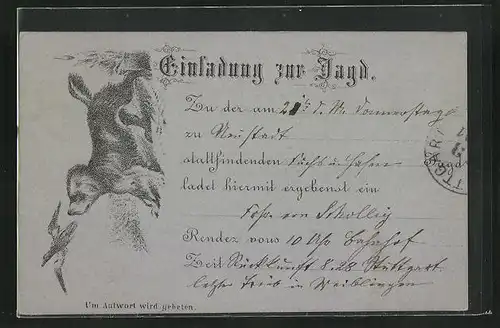 Einladung zur Jagd.
Zu der am 28ts d. M. Donnerstag
zu Neustadt
stattfindenden Fuchs u. Hasen Jagd
ladet hiermit ergebenst ein
von
Rendez vous 10 Uhr Bahnhof
Zeit Rückkunft 8.28 Stuttgart
letzter Trieb in Waiblingen
Um Antwort wird gebeten.